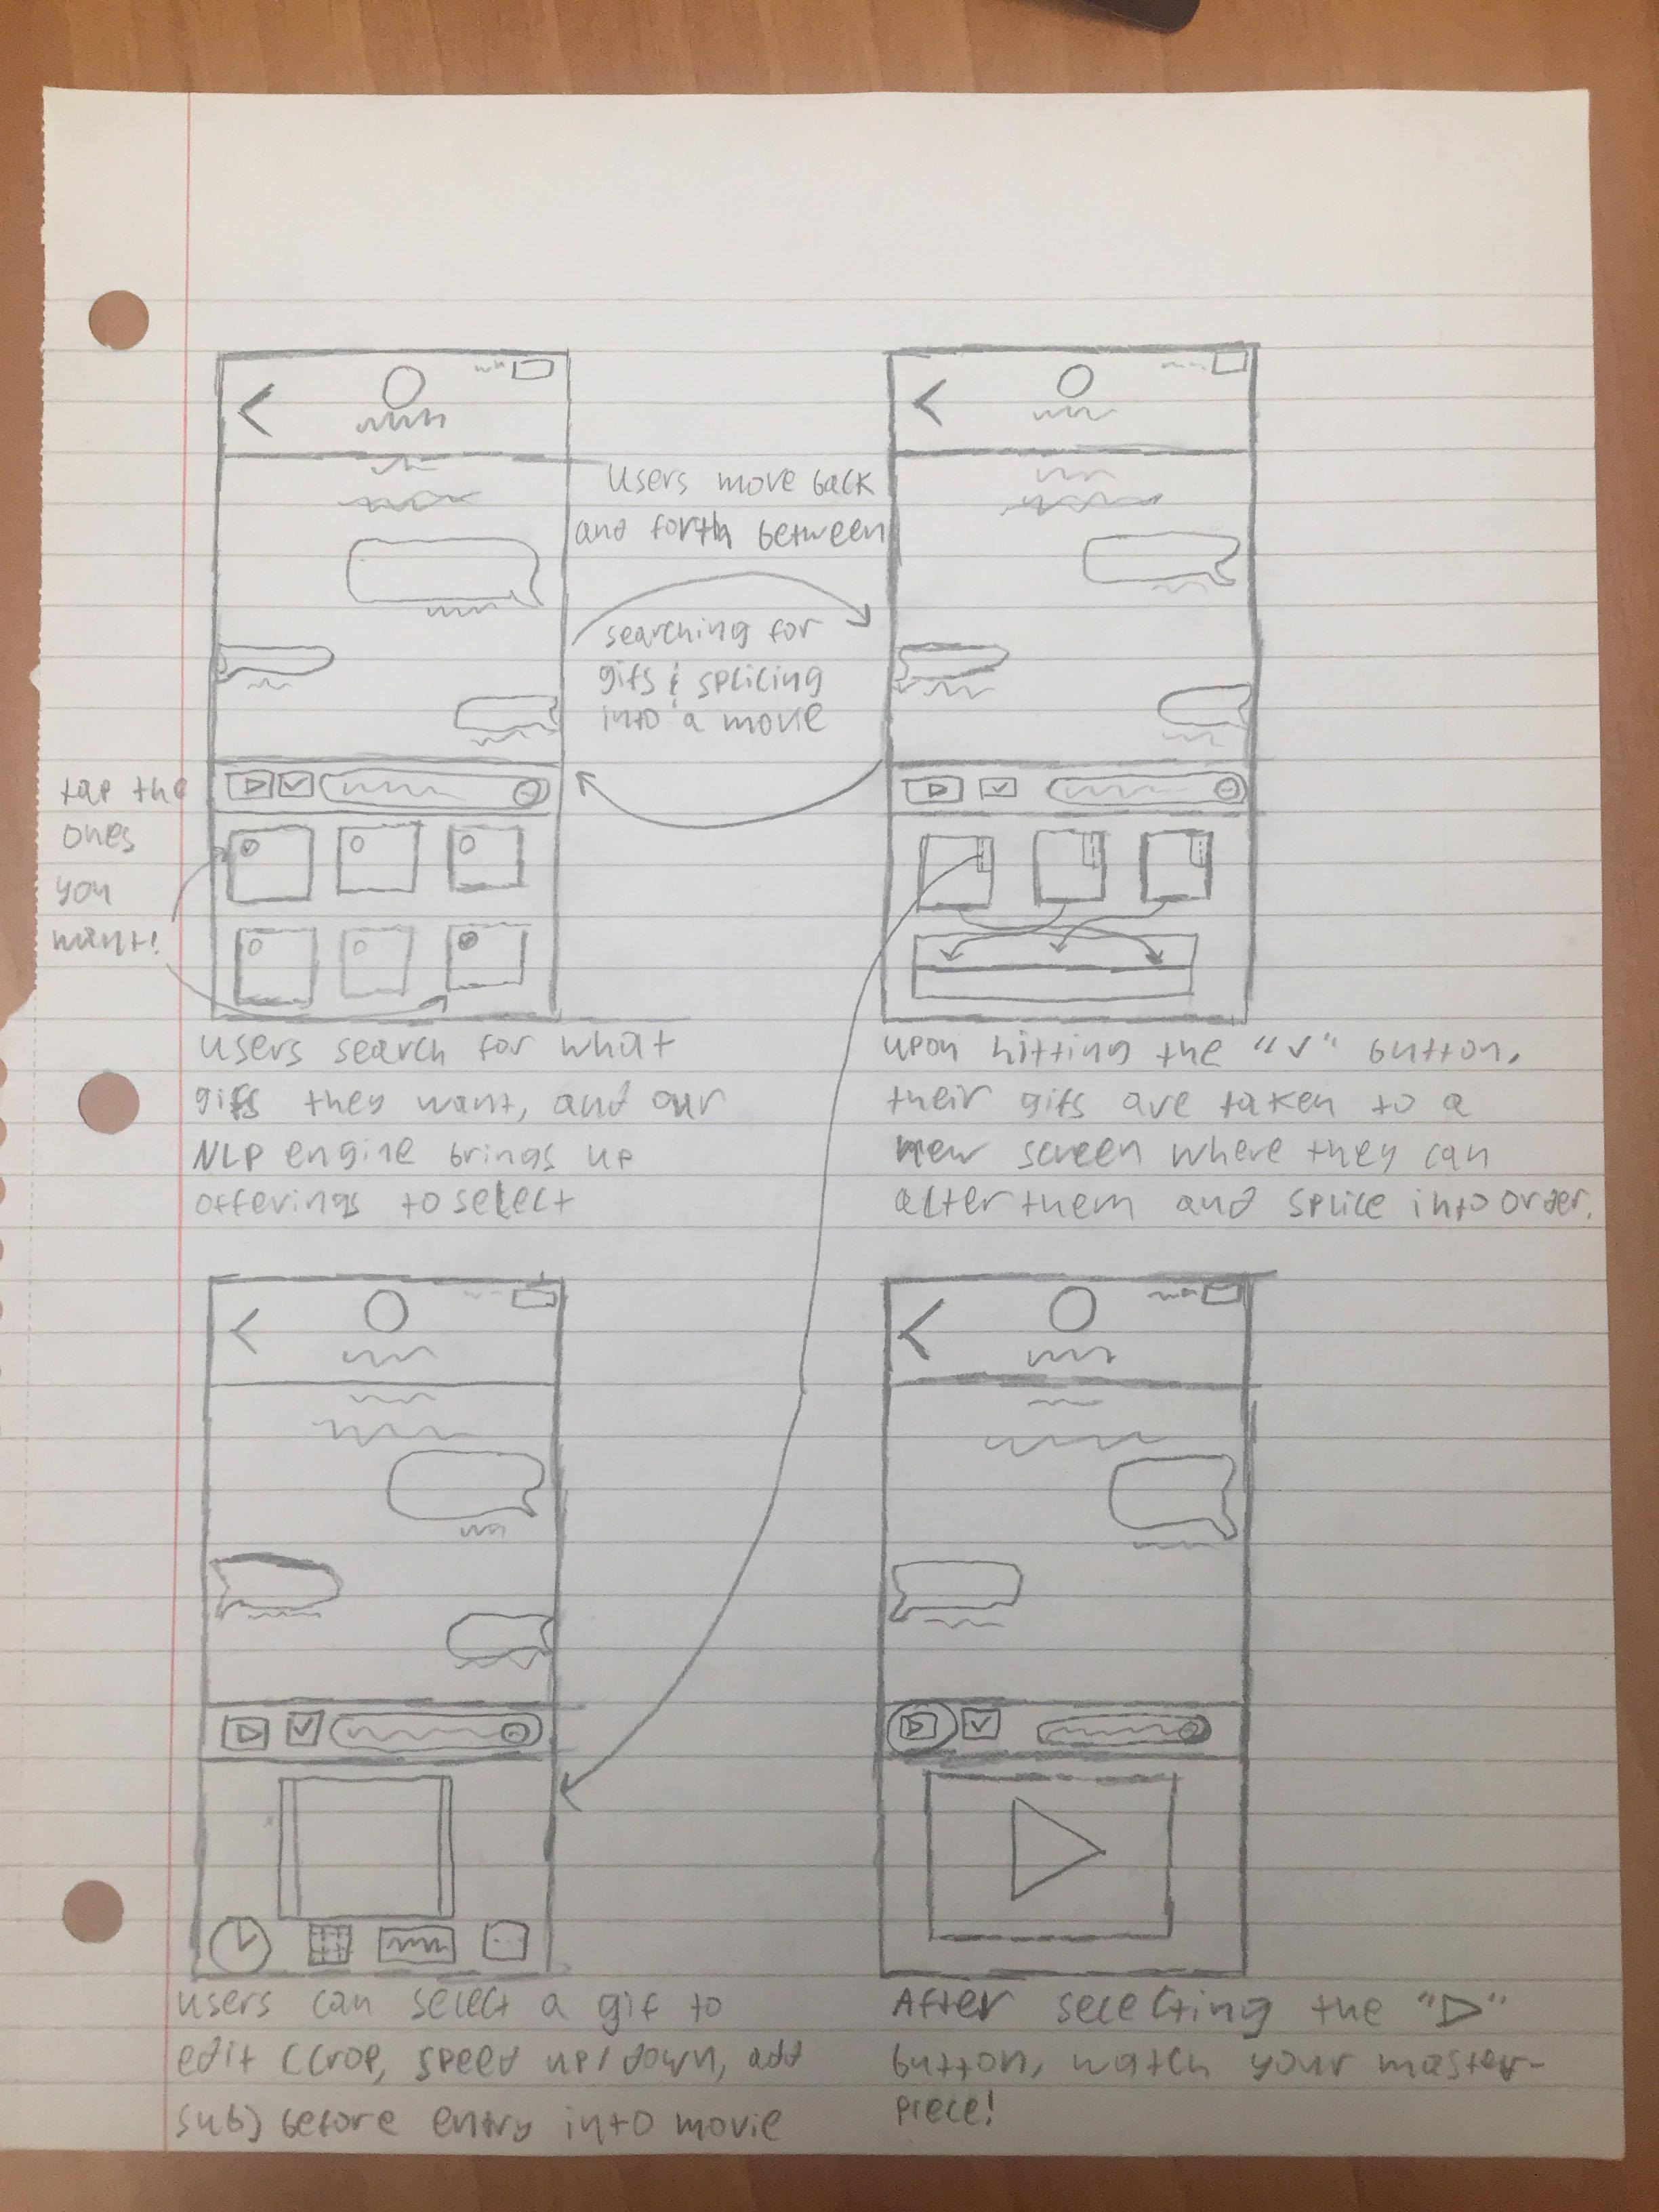 users move back
and forth between
searching for
gifs & splicing
into a movie
tap the
ones
you
want!
users search for what
gifs they want, and our
NLP engine brings up
offerings to select
upon hitting the "✓" button,
their gifs are taken to a
new screen where they can
alter them and splice into order.
users can select a gif to
edit (crop, speed up/down, add
sub) before entry into movie
After selecting the "▷"
button, watch your master-
piece!